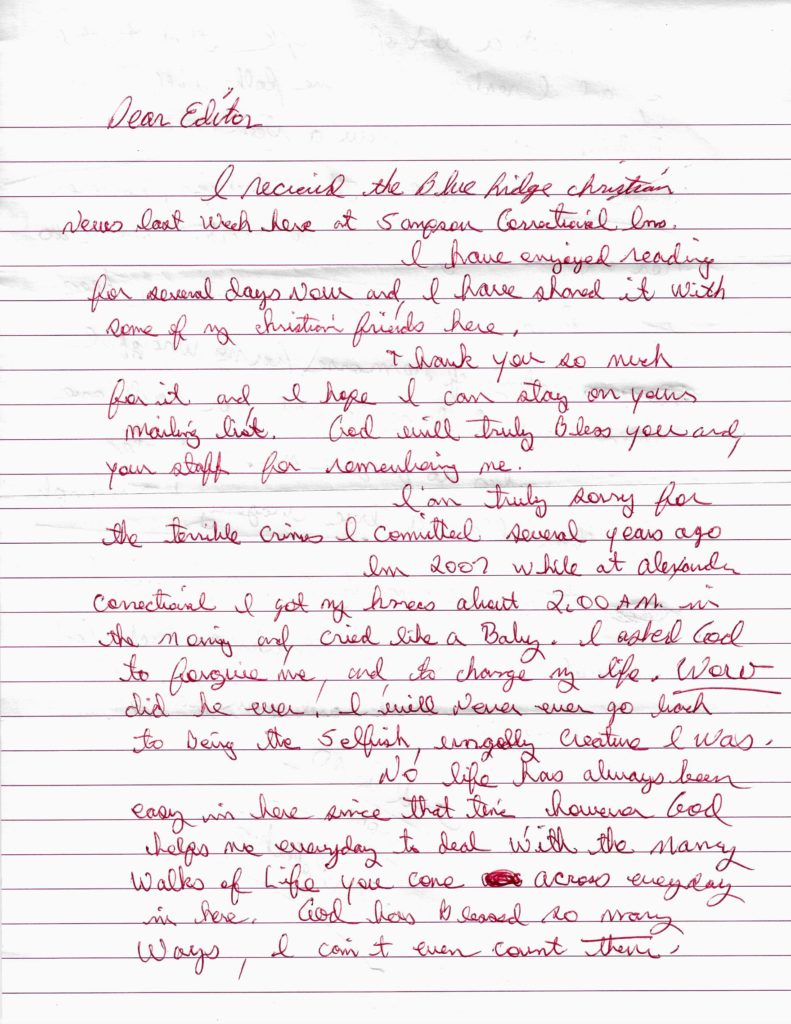 Dear Editor
I recieved the Blue Ridge christian
News last week here at Sampson Correctional Ins.
I have enjoyed reading
for several days Now and, I have shared it with
some of my christian friends here.
Thank you so much
for it and I hope I can stay on yours
mailing list. God will truly Bless you and,
your staff for remembering me.
I am truly sorry for
the terrible crimes I comitted several years ago
In 2007 while at alexander
Correctional I got my knees about 2:00 AM in
the morning and, cried like a Baby. I asked God
to forgive me, and to change my life. Wow
did he ever! I will Never ever go back
to Being the Selfish, ungodly Creature I was.
No life has always been
easy in here since that time however God
helps me everyday to deal with the many
walks of Life you come across everyday
in here. God has Blessed so many
Ways, I can't even count them.